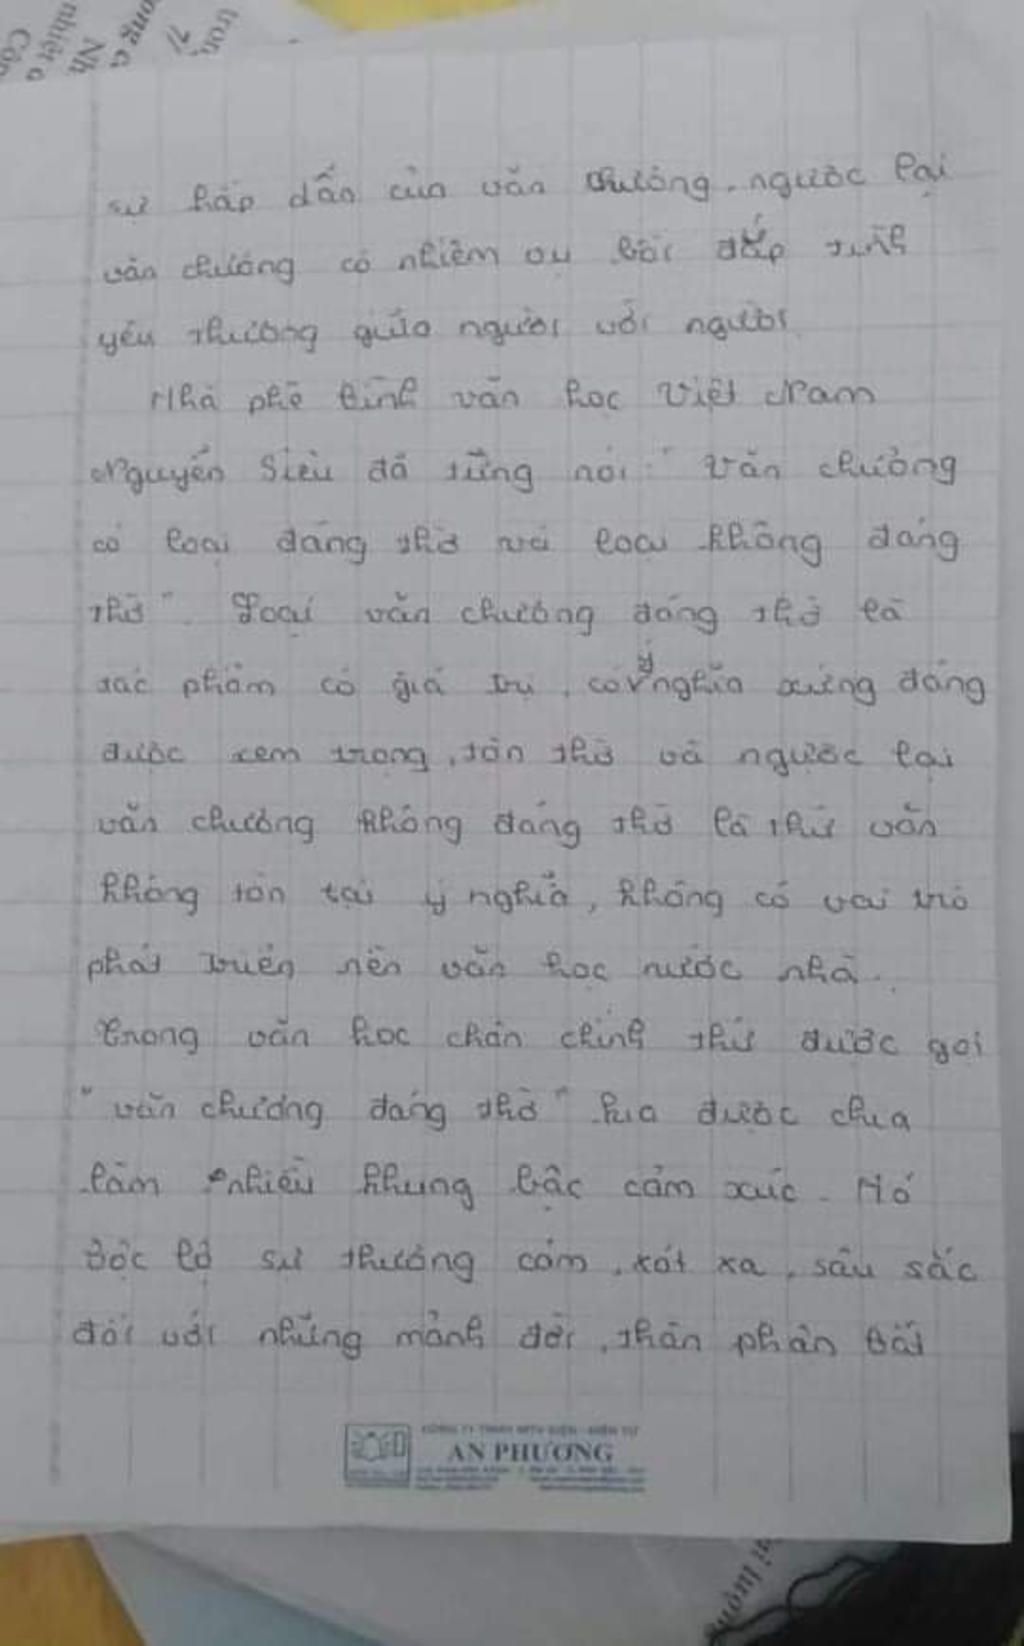 sự hấp dẫn của văn chương, ngược lại
văn chương có nhiệm vụ bồi đắp tình
yêu thương giữa người với người.
Nhà phê bình văn học Việt Nam
Nguyễn Siêu đã từng nói: "Văn chương
có loại đáng thờ và loại không đáng
thờ". Loại văn chương đáng thờ là
tác phẩm có giá trị, có ý nghĩa xứng đáng
được xem trọng, tôn thờ và ngược lại
văn chương không đáng thờ là thứ văn
không tồn tại ý nghĩa, không có vai trò
phát triển nền văn học nước nhà.
Trong văn học chân chính thứ được gọi
"văn chương đáng thờ" được chưa
lắm nhiều khung bậc cảm xúc. Nó
bộc lộ sự thương cảm, xót xa, sâu sắc
đối với những mảnh đời, thân phận bất
AN PHƯƠNG